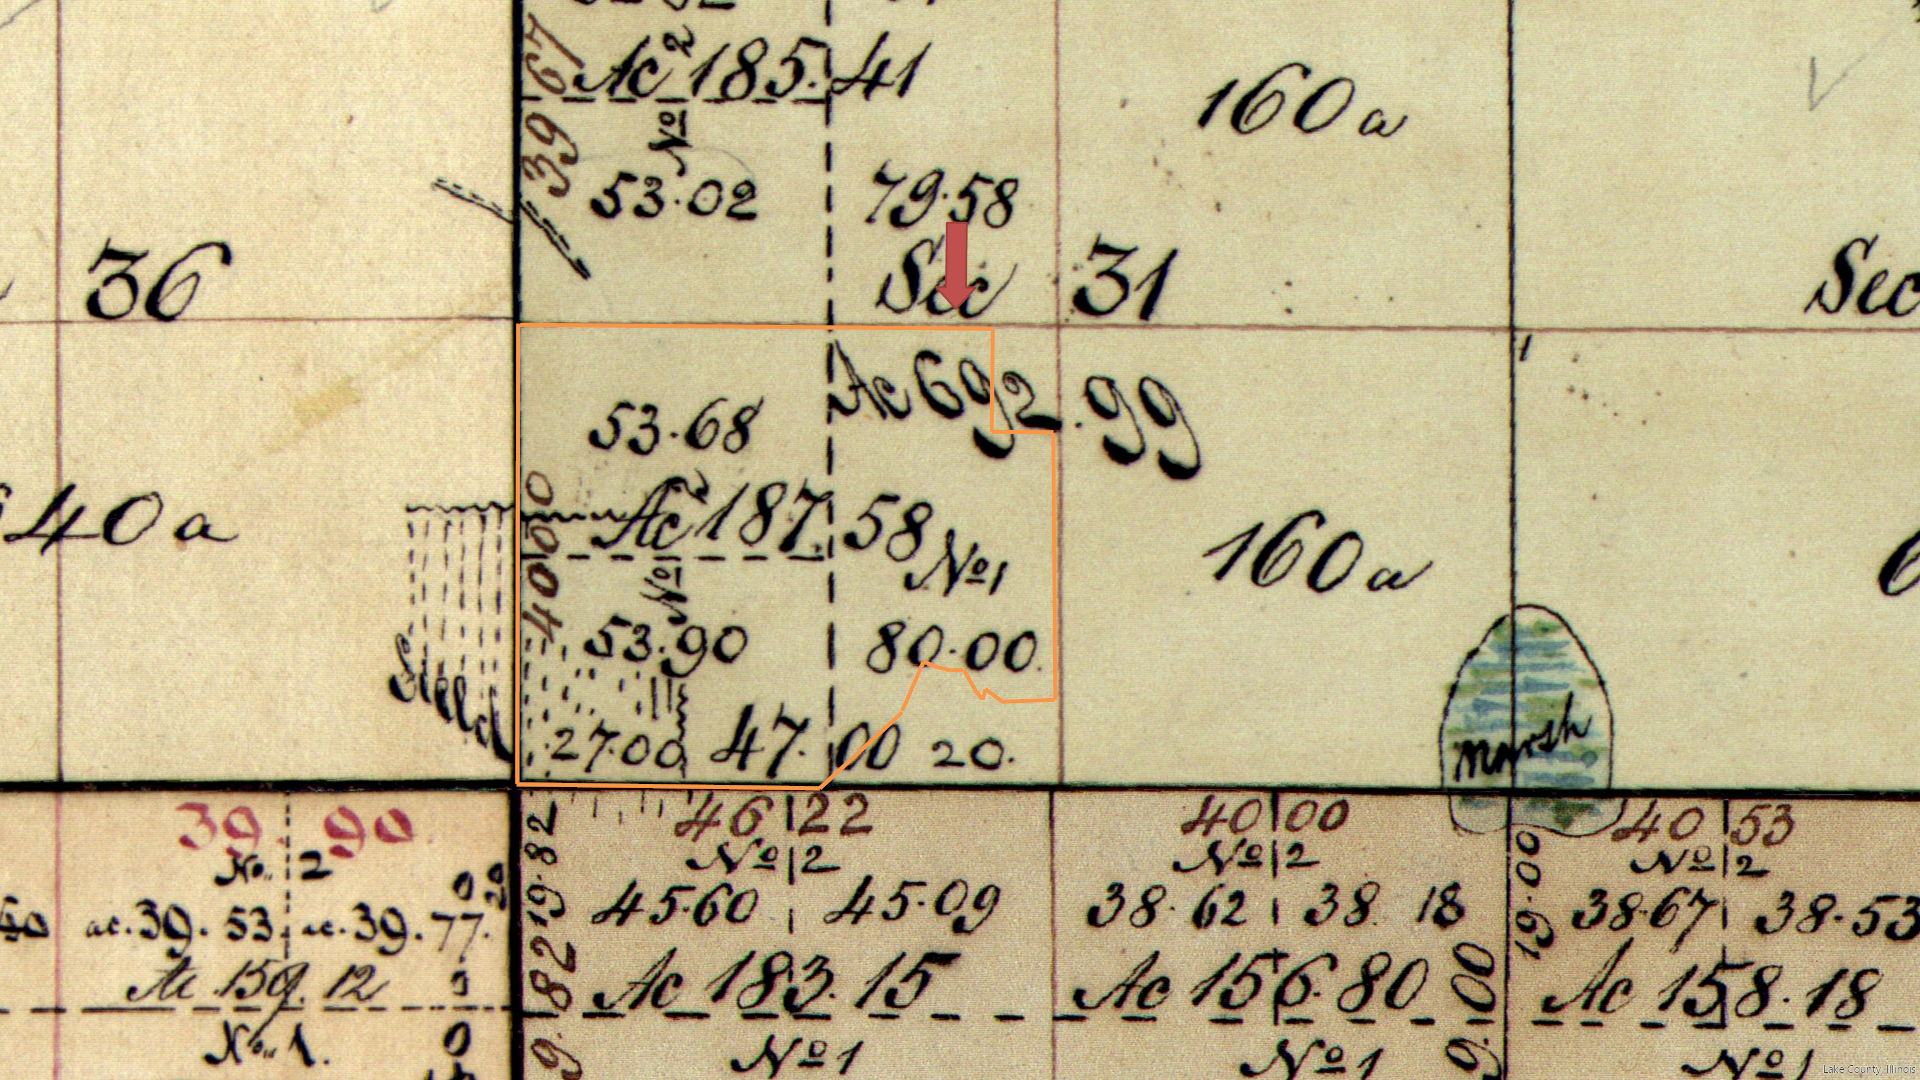 67
Ac 185.41
No 2
39
No
160 a
53.02
79.58
36
Sec 31
Sec
Ac 692.99
53.68
40 a
4000
Ac 187.58
No 1
160 a
No
53.90
80.00
Field
27.00
47.00
20.
Marsh
39.90
No. 2
ac. 39.53
ac. 39.77
Ac 159.12
No. 1.
46 22
No 2
19.82
45.60
45.09
Ac 183.15
No 1
40 00
No 2
38.62
38.18
Ac 156.80
No 1
40 53
No 2
19.00
38.67
38.53
Ac 158.18
No 1
Lake County, Illinois